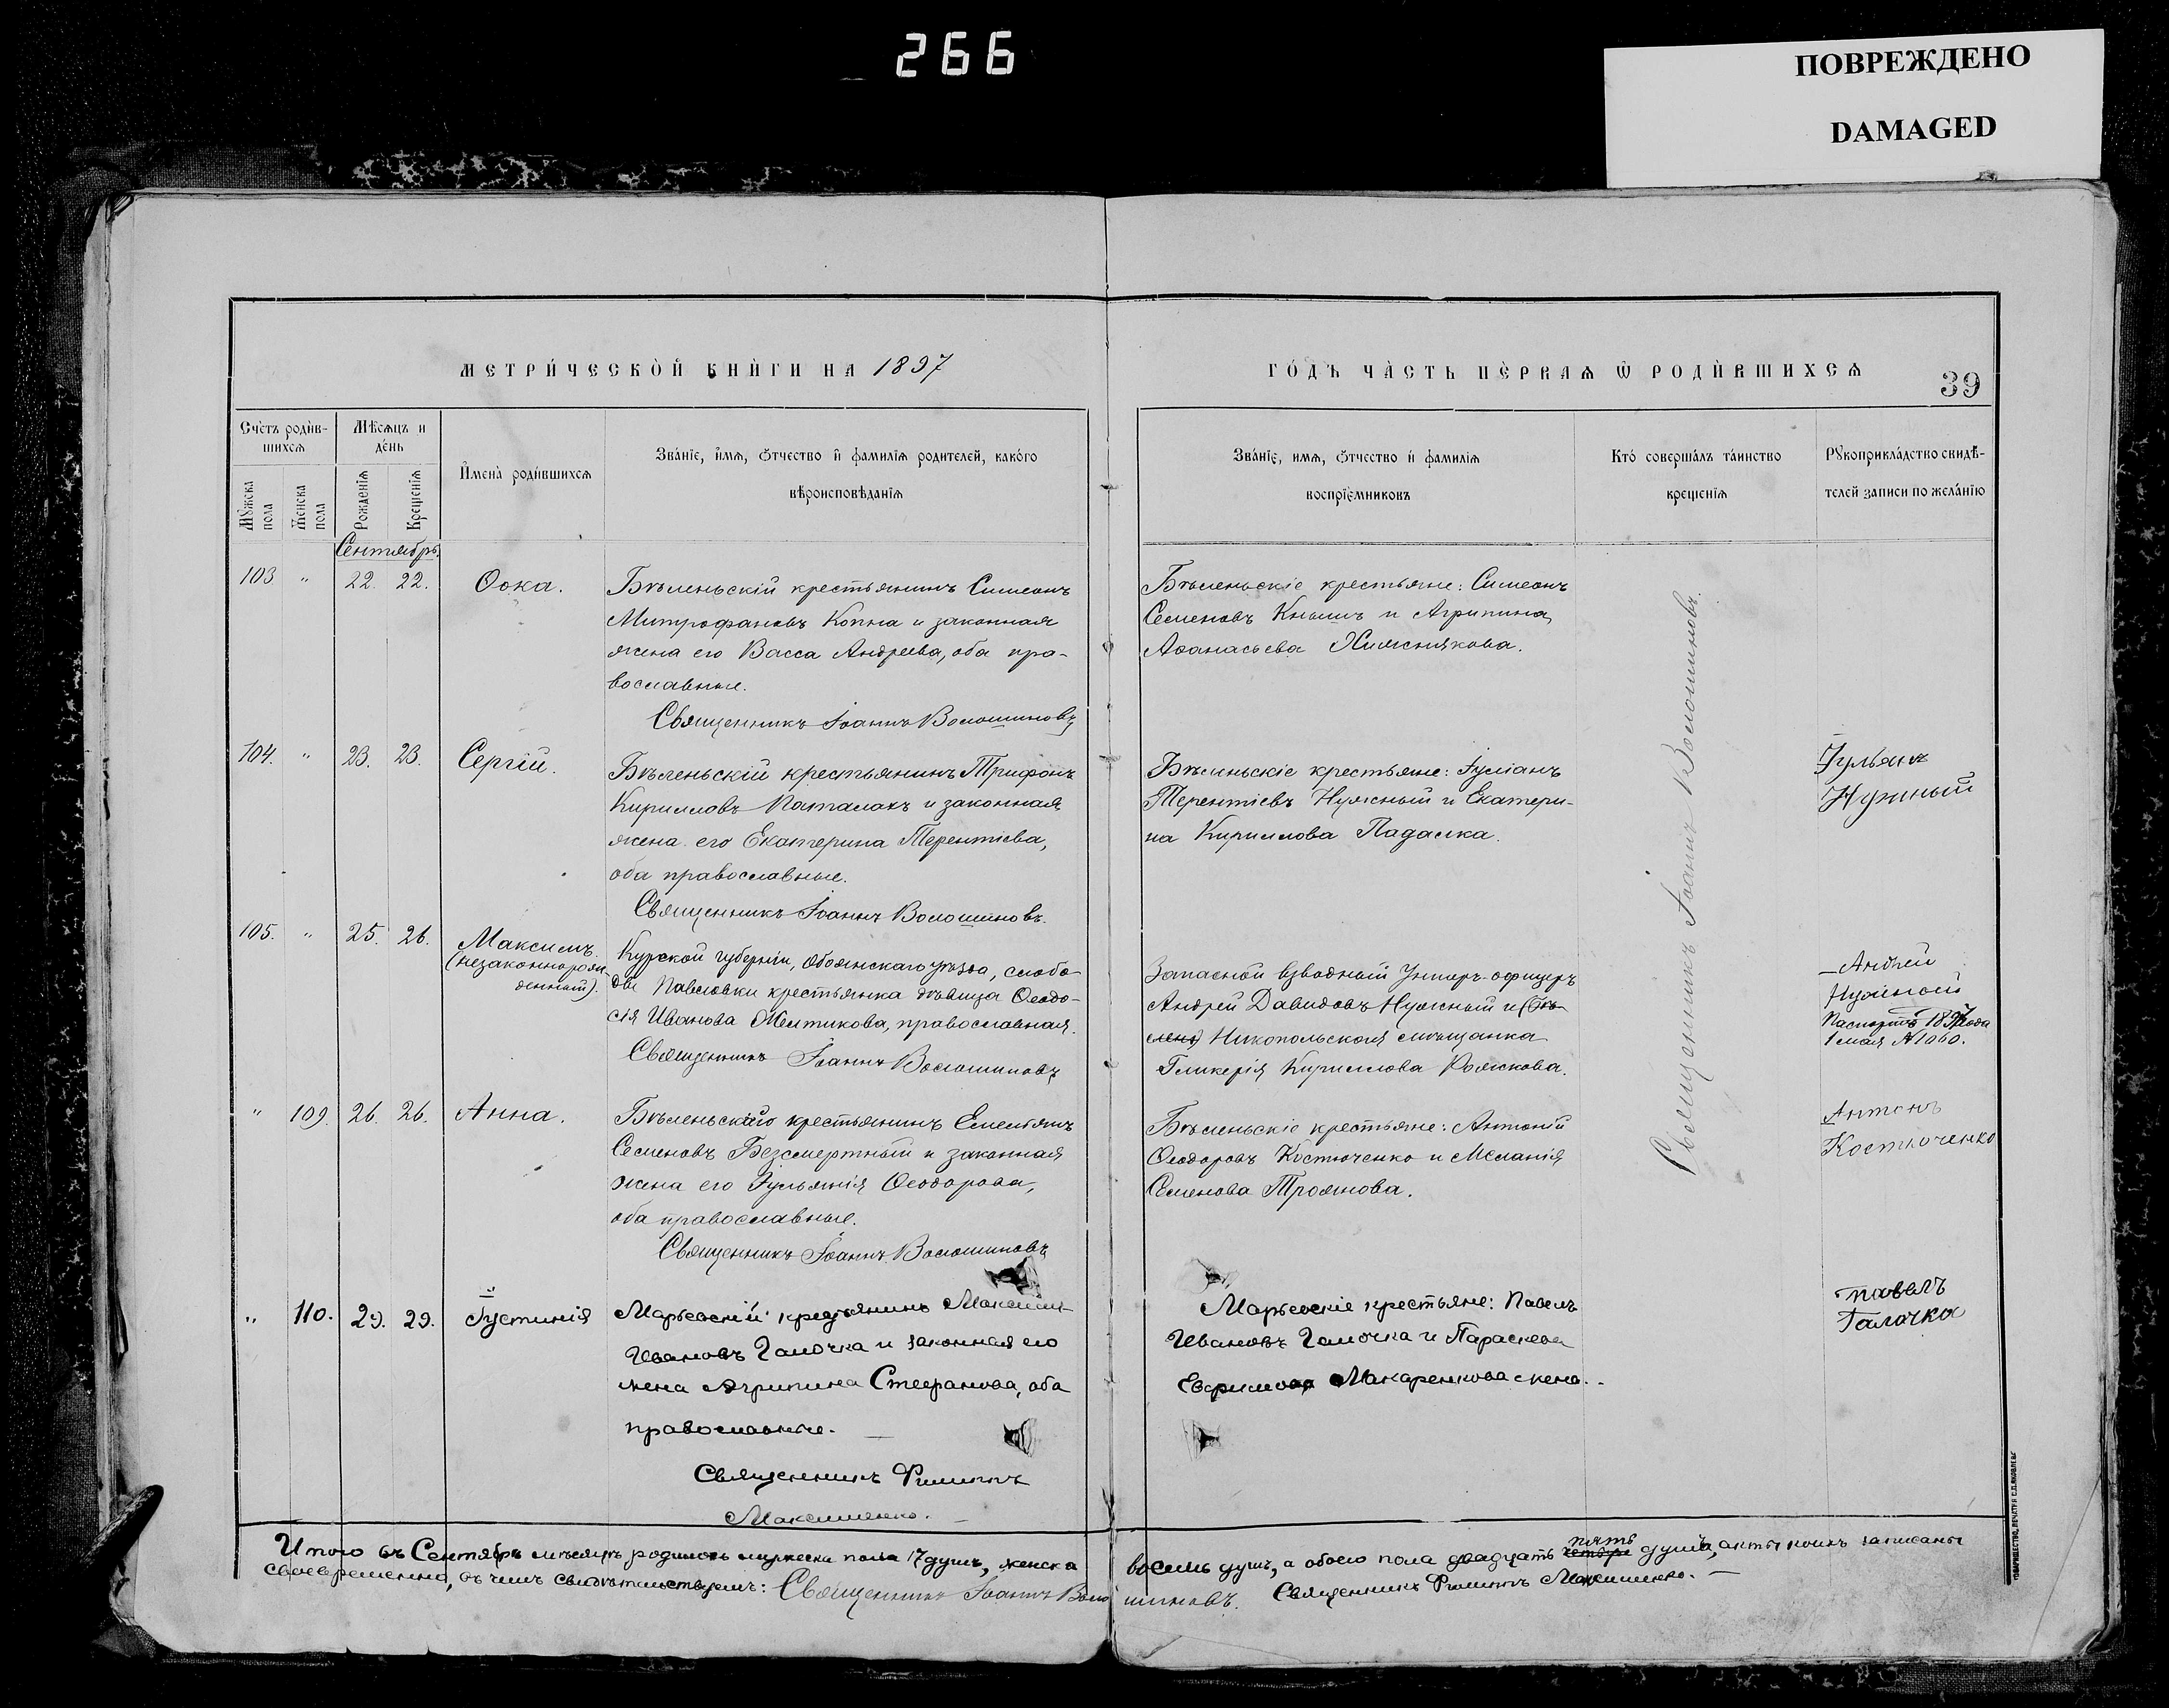 266
ПОВРЕЖДЕНО
DAMAGED
МЕТРИ́ЧЕСКО̀Й КНЍГИ НА 1897
ГО́ДЪ ЧА̀СТЬ ПЀРВАѦ Ѿ РОДЍВШИХСѦ
39
Сче́тъ роди̑в-
шихсѧ
Мѣ́сѧцъ и
де́нь
Мꙋ́жска
пола
Же́нска
пола
Рожде́нїѧ
Креще́нїѧ
И҆мена̀ роди́вшихсѧ
Зва́нїе, и҆́мѧ, ѻ҆́тчество и҆ фами́лїѧ роди́телей, како́го
вѣроисповѣ́данїѧ
Зва́нїе, имѧ, ѻ҆́тчество и҆ фами́лїѧ
воспрїе́мниковъ
Кто́ соверша́лъ та́инство
креще́нїѧ
Рꙋкоприкла́дство свидѣ́-
телей за́писи по жела́нїю
Сентябрь.
103 " 22. 22. Ѳока.
Бѣленьскій крестьянинъ Симеонъ
Митрофановъ Копна и законная
жена его Васса Андреева, оба пра-
вославные.
Священникъ Іоаннъ Волошиновъ
Бѣленьскіе крестьяне: Симеонъ
Семеновъ Кнышъ и Агрипина
Аѳанасьева Хижнякова.
104. " 23. 23. Сергій.
Бѣленьскій крестьянинъ Трифонъ
Кирилловъ Паталахъ и законная
жена его Екатерина Терентіева,
оба православные.
Священникъ Іоаннъ Волошиновъ.
Бѣленьскіе крестьяне: Іуліанъ
Терентіевъ Нужный и Екатери-
на Кириллова Падалка.
Іульянъ
Нужный
105. " 25. 26. Максимъ.
(незаконнорож-
денный).
Курской губерніи, Обоянскаго уѣзда, слобо-
ды Павловки крестьянка дѣвица Ѳеодо-
сія Иванова Желтикова, православная.
Священникъ Іоаннъ Волошиновъ
Запасной взводный Унтеръ-офицеръ
Андрей Давидовъ Нужный и (Бѣ-
лень) Никопольская мѣщанка
Гликерія Кириллова Рожкова.
Андрей
Нужный
Паспортъ 1897 года
1 мая № 1060.
" 109. 26. 26. Анна.
Бѣленьскаго крестьянинъ Емельянъ
Семеновъ Безсмертный и законная
жена его Іульянія Ѳеодорова,
оба православные.
Священникъ Іоаннъ Волошиновъ
Бѣленьскіе крестьяне: Антоній
Ѳеодоровъ Костюченко и Меланія
Семенова Троянова.
Антонъ
Костюченко
Священникъ Іоаннъ Волошиновъ.
" 110. 29. 29. Іустинія
Марьевскій крестьянинъ Максимъ
Ивановъ Галочка и законная его
жена Агрипина Стефанова, оба
православные.
Священникъ Филиппъ
Максименко.
Марьевскіе крестьяне: Павелъ
Ивановъ Галочка и Параскева
Евфимова Макаренкова жена.
Павелъ
Галочка
Итого въ Сентябрѣ мѣсяцѣ родилось мужеска пола 17 душъ, женска восемь душъ, а обоего пола двадцать четыре пять душъ, акты коихъ записаны
своевременно, въ чемъ свидѣтельствуемъ: Священникъ Іоаннъ Волошиновъ. Священникъ Филиппъ Максименко.